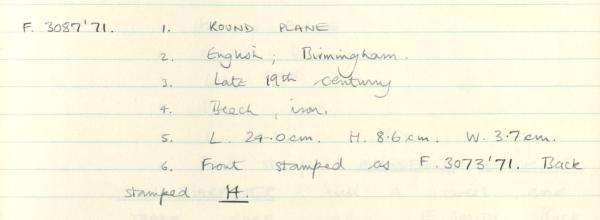 F. 3087'71. 1. ROUND PLANE
2. English; Birmingham.
3. Late 19th century
4. Beech, iron.
5. L. 24.0cm. H. 8.6cm. W. 3.7cm.
6. Front stamped as F.3073'71. Back
stamped 14.